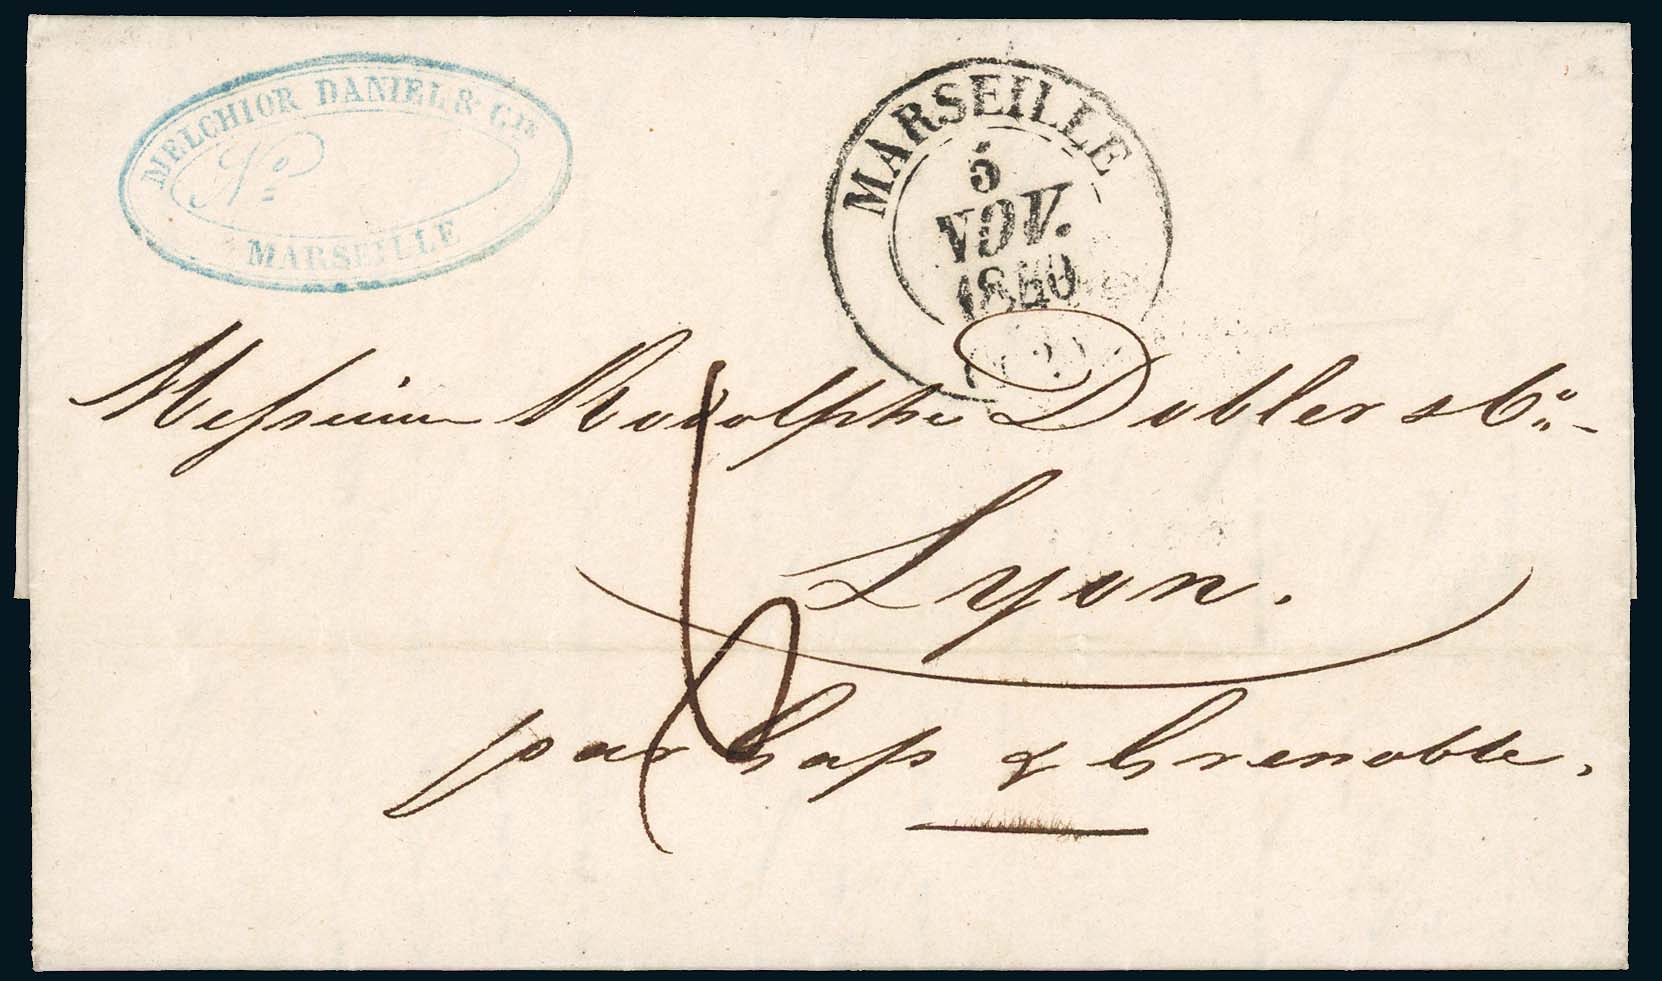 MELCHIOR DANIEL & CIE
No
MARSEILLE
MARSEILLE
5
NOV.
1840
Messieurs Rodolphe Dobler & Co.
Lyon.
par Gap & Grenoble.